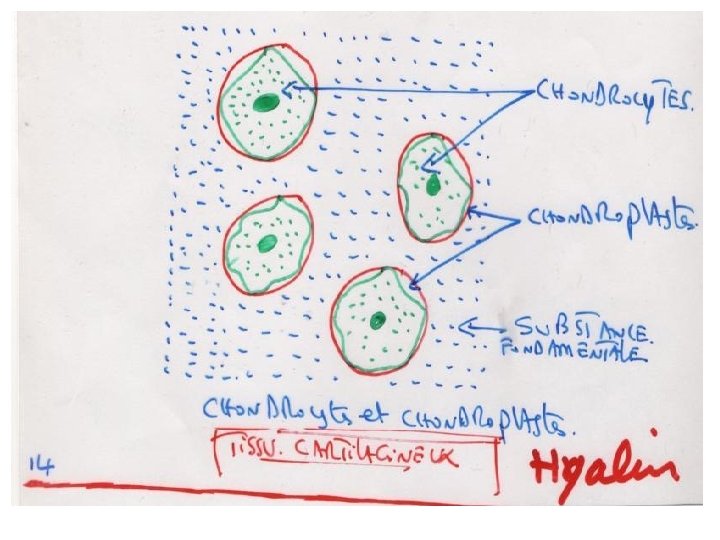 CHONDROCYTES.
CHONDROplAStes.
SUBSTANCE.
FONDAMENTALE
CHONDROcytes et CHONDROplAStes.
TiSSU. CARTILAGINEUX
14
Hyalin